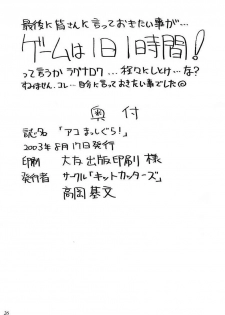 最後に皆さんに言っておきたい事が…
ゲームは1日1時間!
って言うかラグナロク…程々にしとけ…な?
すみません、コレ…自分に言っておきたい事でした
奥付
誌名 「アコまっしぐら!」
2003年8月17日発行
印刷 大友出版印刷 様
発行者 サークル「キットカッターズ」
高岡基文
26